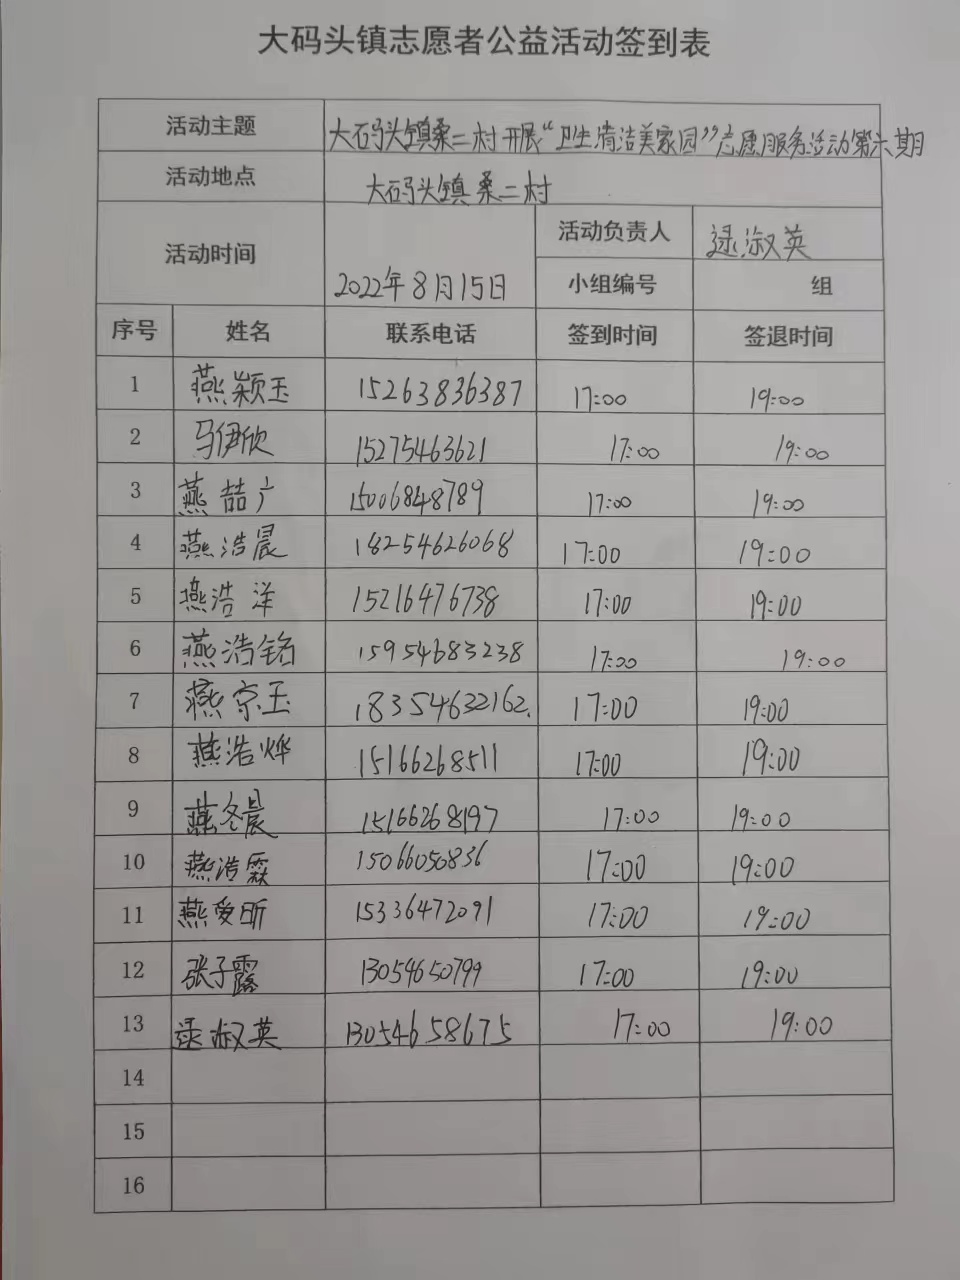 大码头镇志愿者公益活动签到表
活动主题 大码头镇桑二村开展“卫生清洁美家园”志愿服务活动第六期
活动地点 大码头镇桑二村
活动时间 2022年8月15日 活动负责人 逯淑英
小组编号 组
序号 姓名 联系电话 签到时间 签退时间
1 燕颖玉 15263836387 17:00 19:00
2 马伊欣 15275463621 17:00 19:00
3 燕喆广 15006848789 17:00 19:00
4 燕浩晨 18254626068 17:00 19:00
5 燕浩洋 15216476738 17:00 19:00
6 燕浩铭 15954683238 17:00 19:00
7 燕京玉 18354632162. 17:00 19:00
8 燕浩烨 15166268511 17:00 19:00
9 燕冬晨 15166268197 17:00 19:00
10 燕浩霖 15066050836 17:00 19:00
11 燕爱昕 15336472091 17:00 19:00
12 张子露 13054650799 17:00 19:00
13 逯淑英 13054658675 17:00 19:00
14
15
16